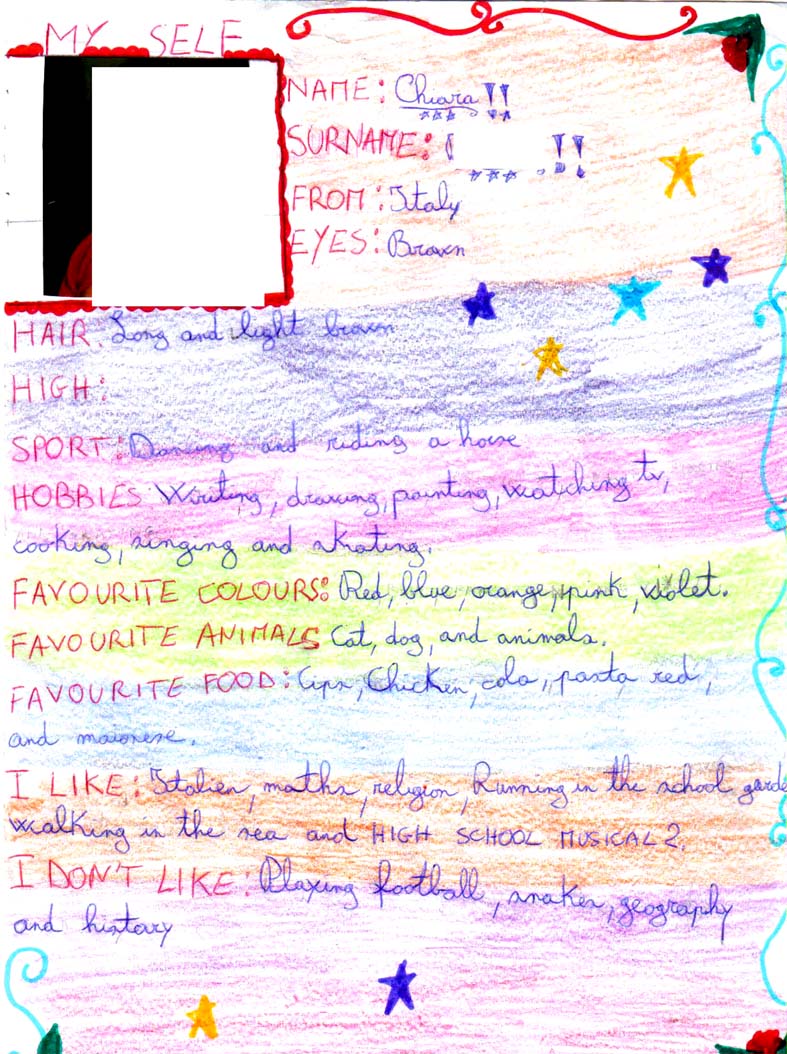 MY SELF
NAME: Chiara!!
SURNAME: !!
FROM: Italy
EYES: Brown
HAIR. Long and light brown
HIGH:
SPORT: Dancing and riding a horse
HOBBIES Writing, drawing, painting, watching tv,
cooking, singing and skating.
FAVOURITE COLOURS: Red, blue, orange, pink, violet.
FAVOURITE ANIMALS Cat, dog, and animals.
FAVOURITE FOOD: Cips, Chicken, cola, pasta red,
and maionese.
I LIKE: Italien, maths, religion, Running in the school garde
walking in the sea and HIGH SCHOOL MUSICAL 2.
I DON'T LIKE: Plaxing football, snakes, geography
and history